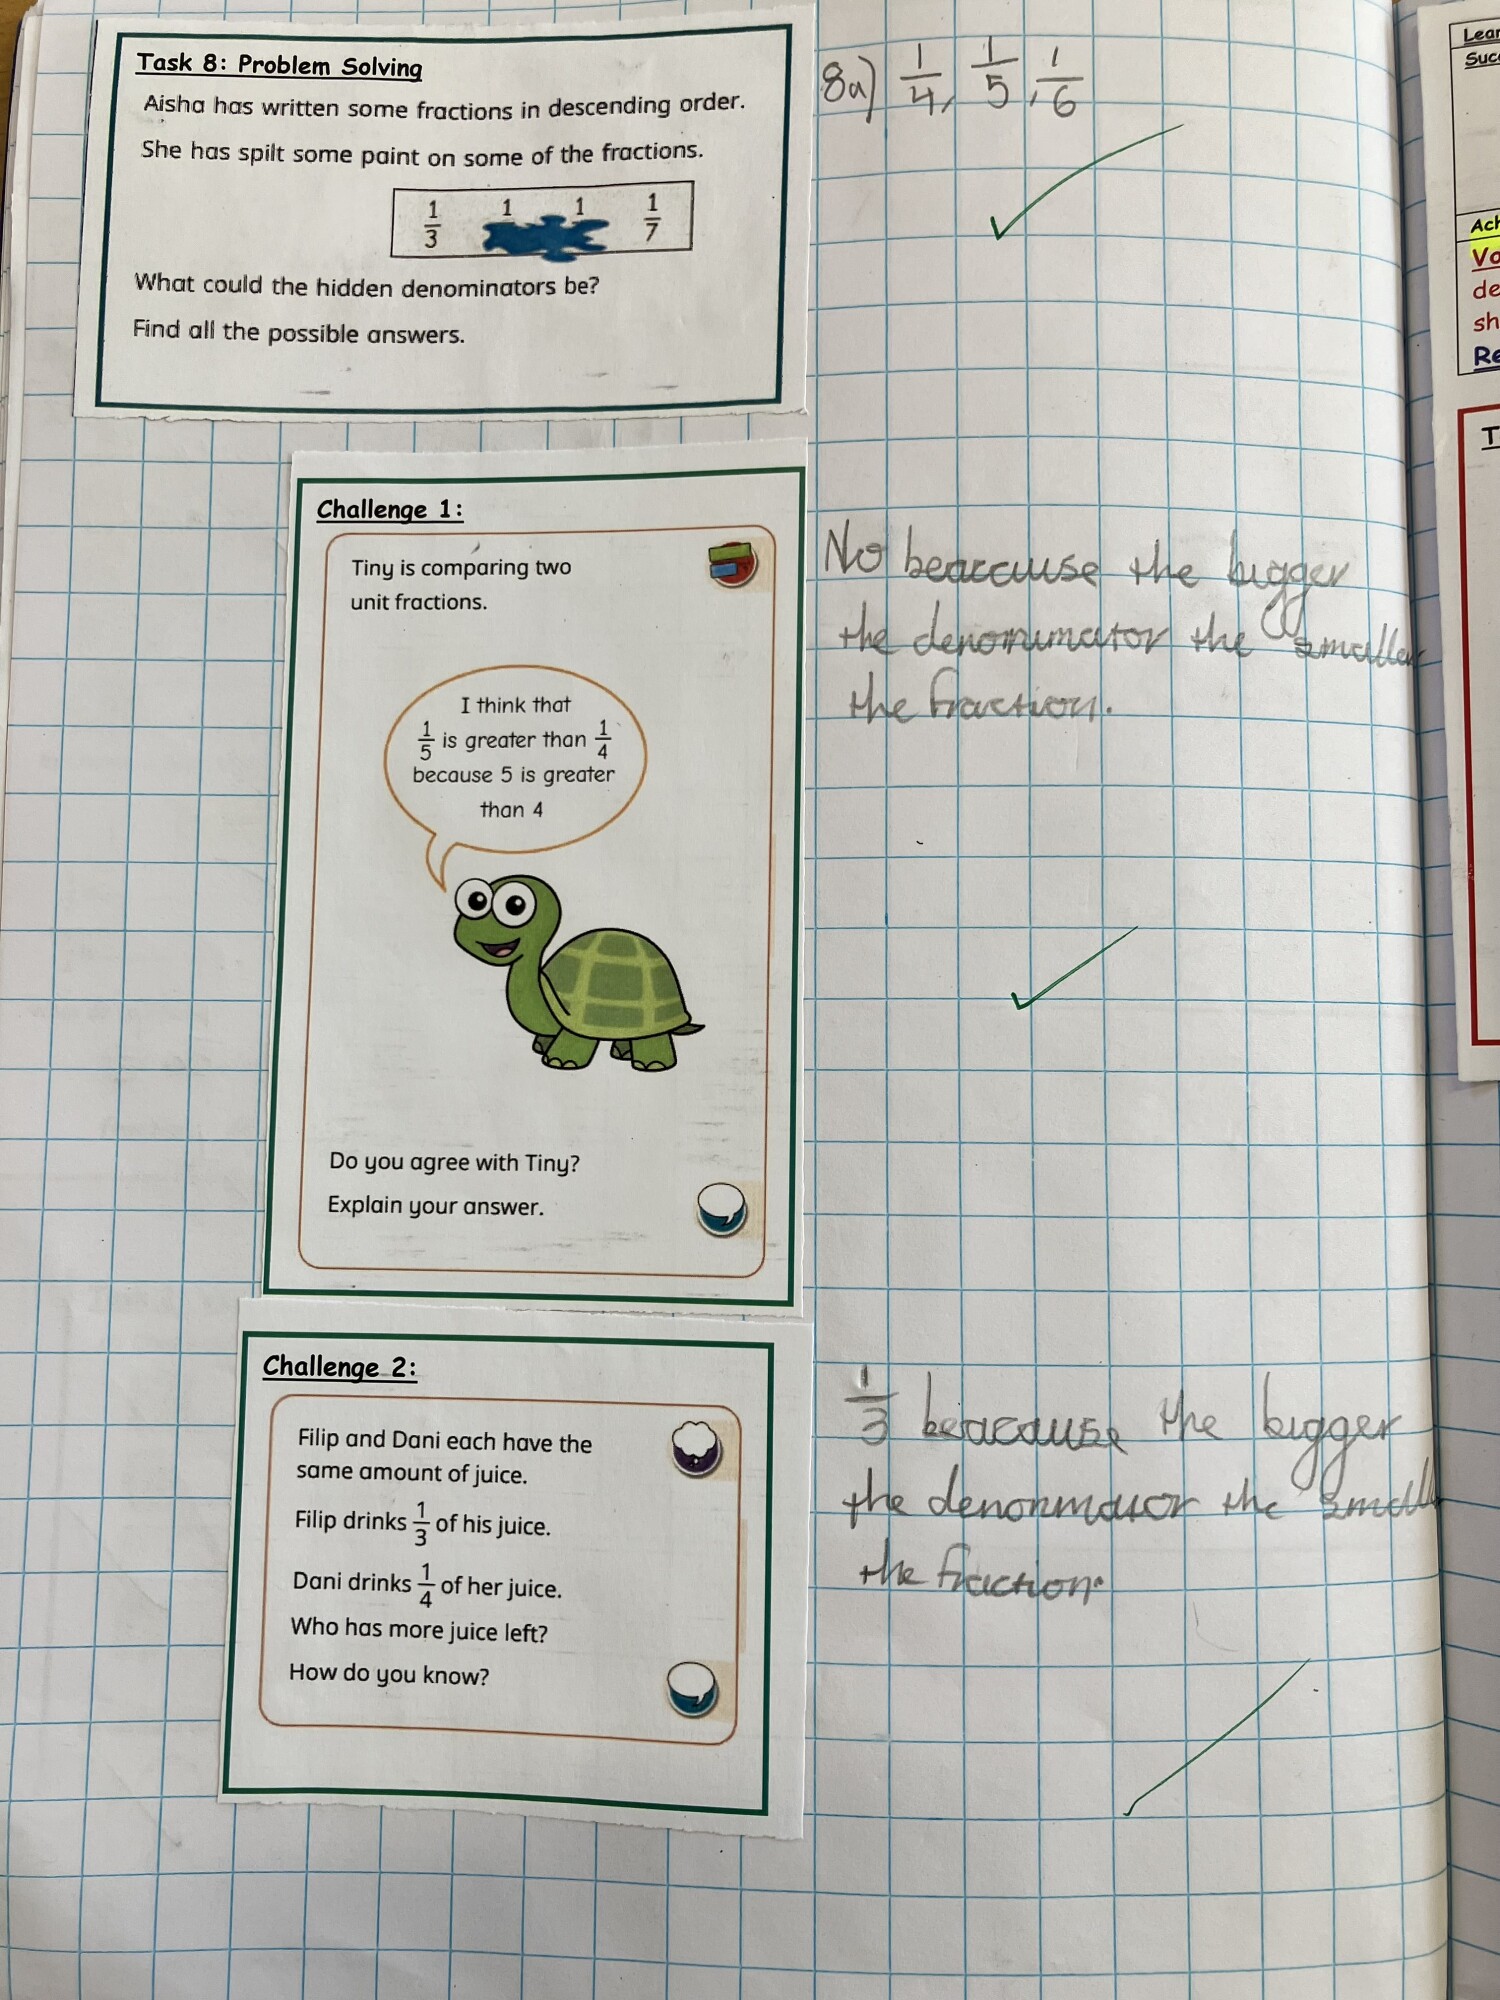 Task 8: Problem Solving
Aisha has written some fractions in descending order.
She has spilt some paint on some of the fractions.
1/3 1 1 1/7
What could the hidden denominators be?
Find all the possible answers.
8a) 1/4, 1/5, 1/6
Challenge 1:
Tiny is comparing two
unit fractions.
I think that
1/5 is greater than 1/4
because 5 is greater
than 4
Do you agree with Tiny?
Explain your answer.
No beaccause the bigger
the denominator the smaller
the fraction.
Challenge 2:
Filip and Dani each have the
same amount of juice.
Filip drinks 1/3 of his juice.
Dani drinks 1/4 of her juice.
Who has more juice left?
How do you know?
1/3 beacause the bigger
the denonmator the small
the fraction.
Lear
Succ
Ach
Vo
de
sh
Re
T